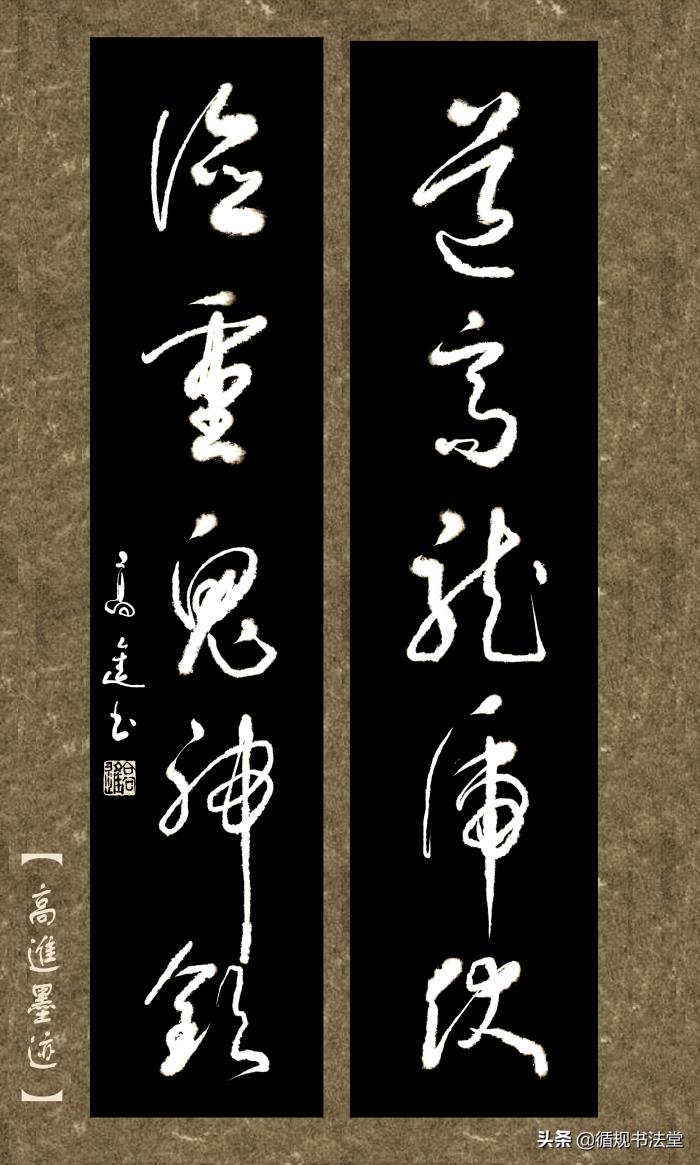 道高龍虎伏
德重鬼神欽
高進书
高進
【高進墨迹】
头条 @循规书法堂